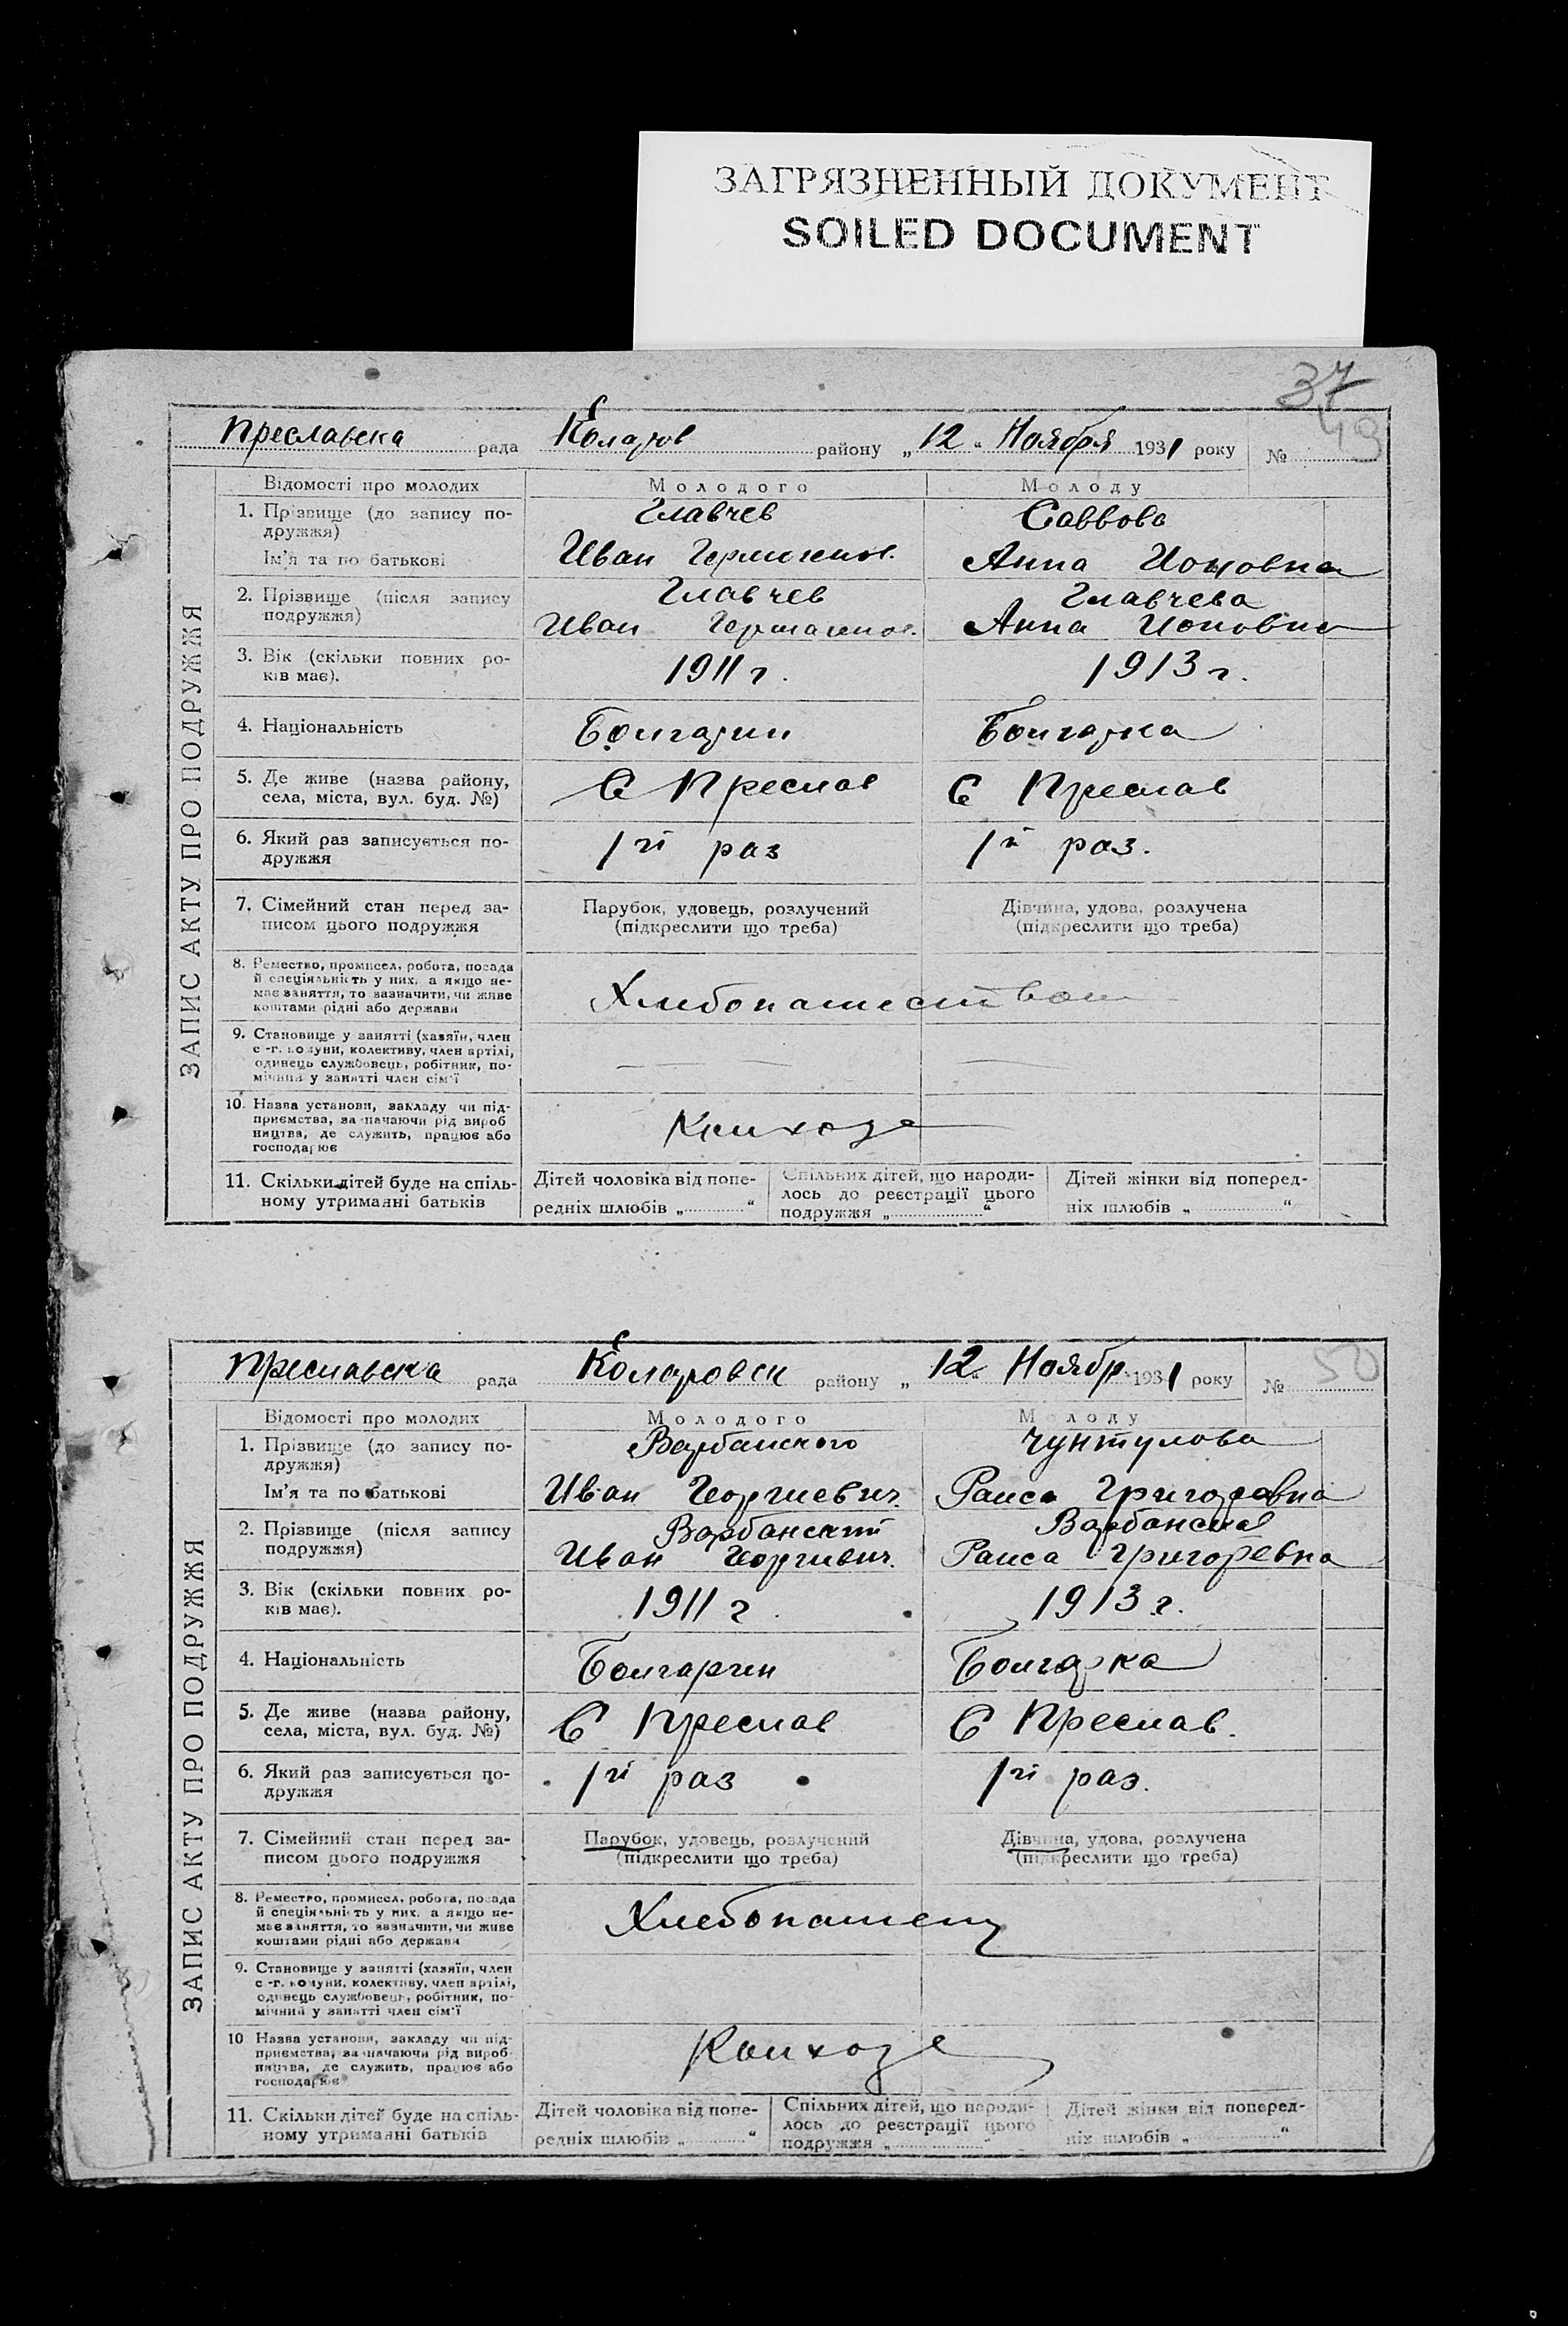 ЗАГРЯЗНЕННЫЙ ДОКУМЕНТ
SOILED DOCUMENT
37
49
Преславска рада Коларов району „12“ Ноября 1931 року №
ЗАПИС АКТУ ПРО ПОДРУЖЖЯ
Відомості про молодих Молодого Молоду
1. Прізвище (до запису по-
дружжя) Главчев Саввова
Ім'я та по батькові Иван Анна Ионовна
2. Прізвище (після запису Главчев Главчева
подружжя) Иван Анна Ионовна
3. Вік (скільки повних ро-
ків має). 1911 г. 1913 г.
4. Національність Болгарин Болгарка
5. Де живе (назва району,
села, міста, вул. буд. №) С Преслав С Преслав
6. Який раз записується по-
дружжя 1й раз 1й раз.
7. Сімейний стан перед за- Парубок, удовець, розлучений Дівчина, удова, розлучена
писом цього подружжя (підкреслити що треба) (підкреслити що треба)
8. Ремество, промисел, робота, посада
й спеціяльність у них, а якщо не-
має заняття, то зазначити, чи живе
коштами рідні або держави Хлебопашеством
9. Становище у занятті (хазяїн, член
с.-г. комуни, колективу, член артілі,
одинець службовець, робітник, по-
мічний у занятті член сім'ї
10. Назва установи, закладу чи під-
приємства, зазначаючи рід вироб
ництва, де служить, працює або
господарює Колхозе
11. Скільки дітей буде на спіль- Дітей чоловіка від попе- Спільних дітей, що народи- Дітей жінки від поперед-
ному утриманні батьків редніх шлюбів „ “ лось до реєстрації цього ніх шлюбів „ “
подружжя „ “
Преславска рада Коларовск району „12“ Ноябр 1931 року № 50
ЗАПИС АКТУ ПРО ПОДРУЖЖЯ
Відомості про молодих Молодого Молоду
1. Прізвище (до запису по-
дружжя) Варбанского Чунтулова
Ім'я та по батькові Иван Георгиевич. Раиса Григоревна
2. Прізвище (після запису Варбанский Варбанская
подружжя) Иван Георгивич. Раиса Григоревна
3. Вік (скільки повних ро-
ків має). 1911 г 1913 г.
4. Національність Болгарин Болгарка
5. Де живе (назва району,
села, міста, вул. буд. №) С Преслав С Преслав.
6. Який раз записується по-
дружжя 1й раз 1й раз.
7. Сімейний стан перед за- Парубок, удовець, розлучений Дівчина, удова, розлучена
писом цього подружжя (підкреслити що треба) (підкреслити що треба)
8. Ремество, промисел, робота, посада
й спеціяльність у них, а якщо не-
має заняття, то зазначити, чи живе
коштами рідні або держави Хлебопашец
9. Становище у занятті (хазяїн, член
с.-г. комуни, колективу, член артілі,
одинець службовець, робітник, по-
мічний у занятті член сім'ї
10 Назва установи, закладу чи під-
приємства, зазначаючи рід вироб
ництва, де служить, працює або
господарює Колхозе
11. Скільки дітей буде на спіль- Дітей чоловіка від попе- Спільних дітей, що народи- Дітей жінки від поперед-
ному утриманні батьків редніх шлюбів „ “ лось до реєстрації цього ніх шлюбів „ “
подружжя „ “